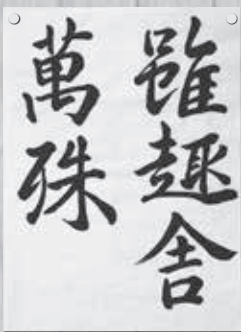 雖趣舎
萬殊